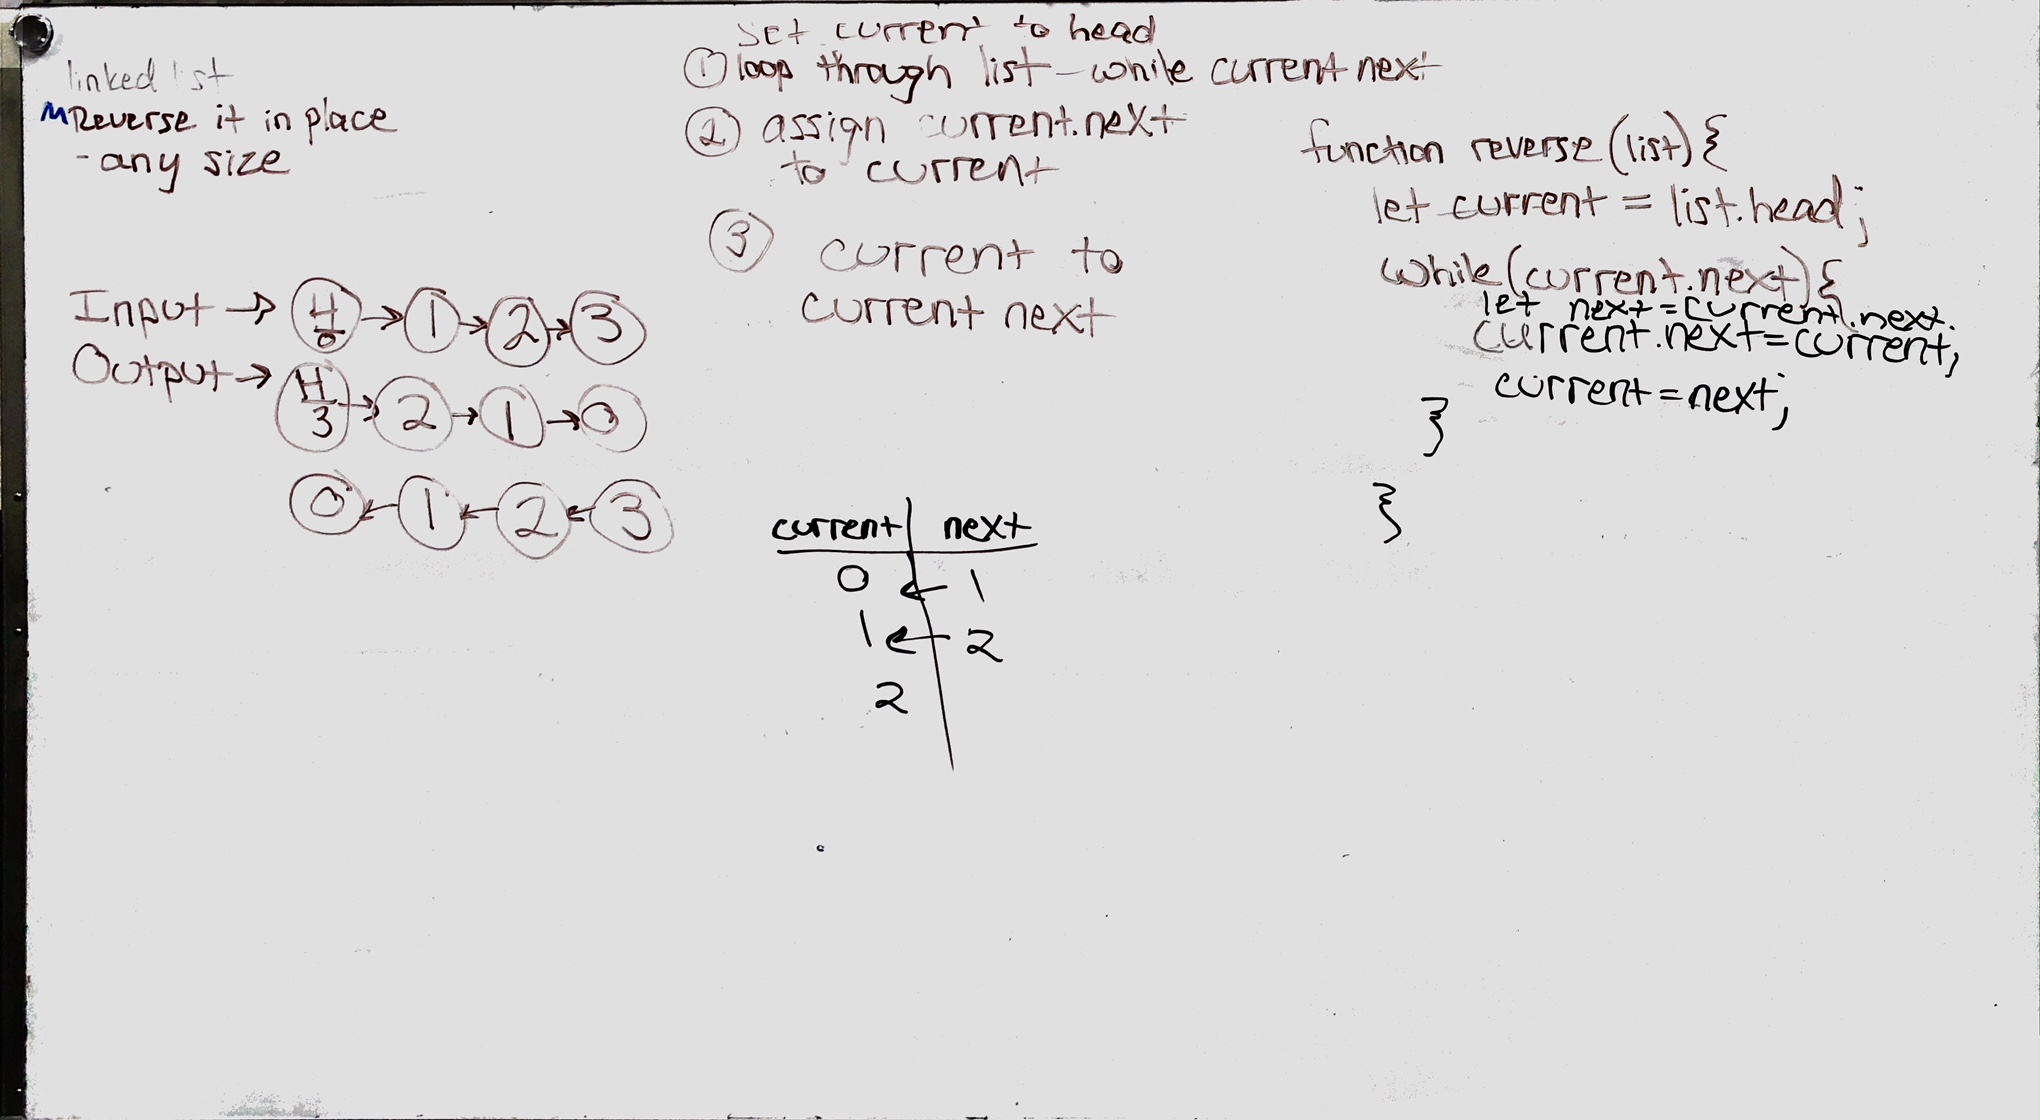 linked list
Reverse it in place
- any size
Input → H 0 → 1 → 2 → 3
Output → H 3 → 2 → 1 → 0
0 ← 1 ← 2 ← 3
set current to head
① loop through list - while current next
② assign current.next
to current
③ current to
current next
current | next
0 ← 1
1 ← 2
2
function reverse (list) {
let current = list.head;
while (current.next) {
let next = current.next.
current.next = current;
current = next;
}
}